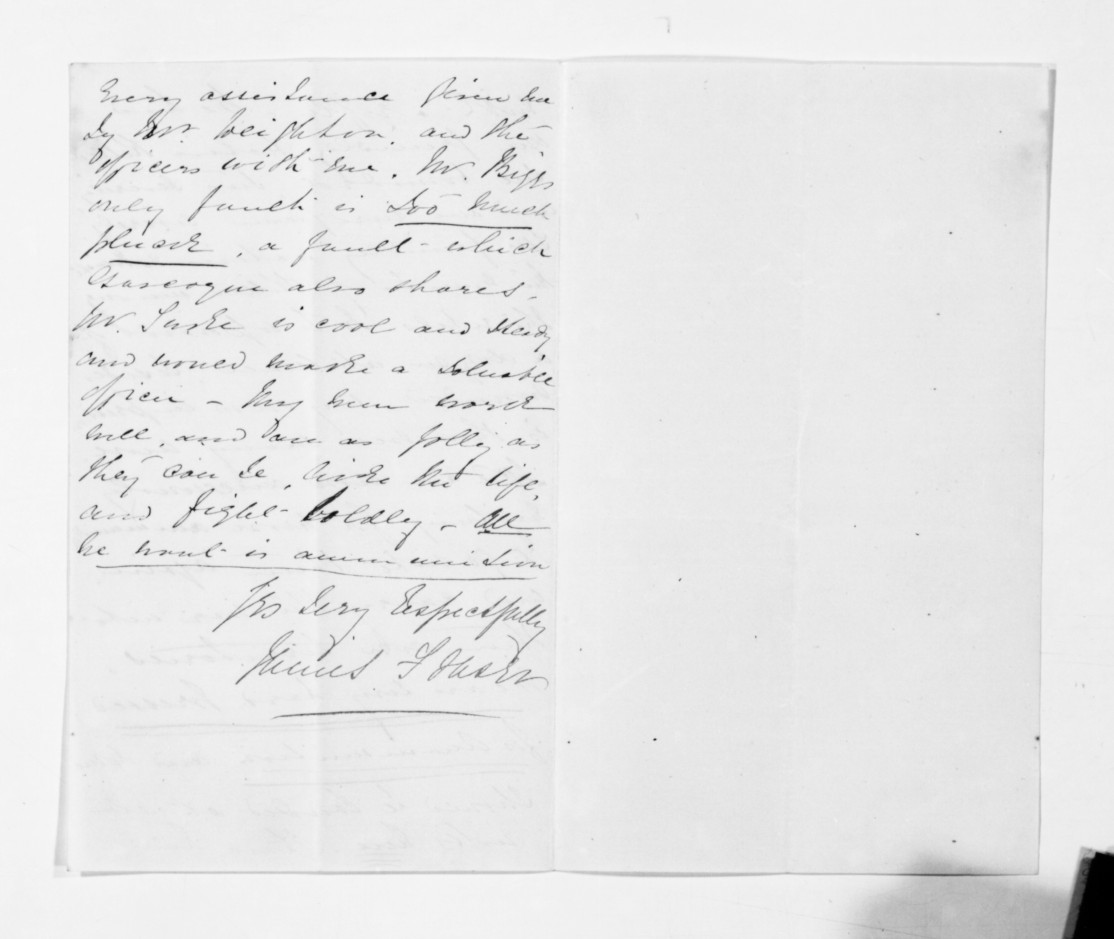 Every assistance given me
by Mr Weighton. and the
officers with me. Mr. Biggs
only fault is too much
pluck, a fault which
Gascogne also shares.
Mr. Tuske is cool and steady
and would make a valuable
officer - My men work
well, and are as jolly as
they can be, like the life,
and fight boldly - All
we want is ammunition
Yrs Very Respectfully
James Fraser